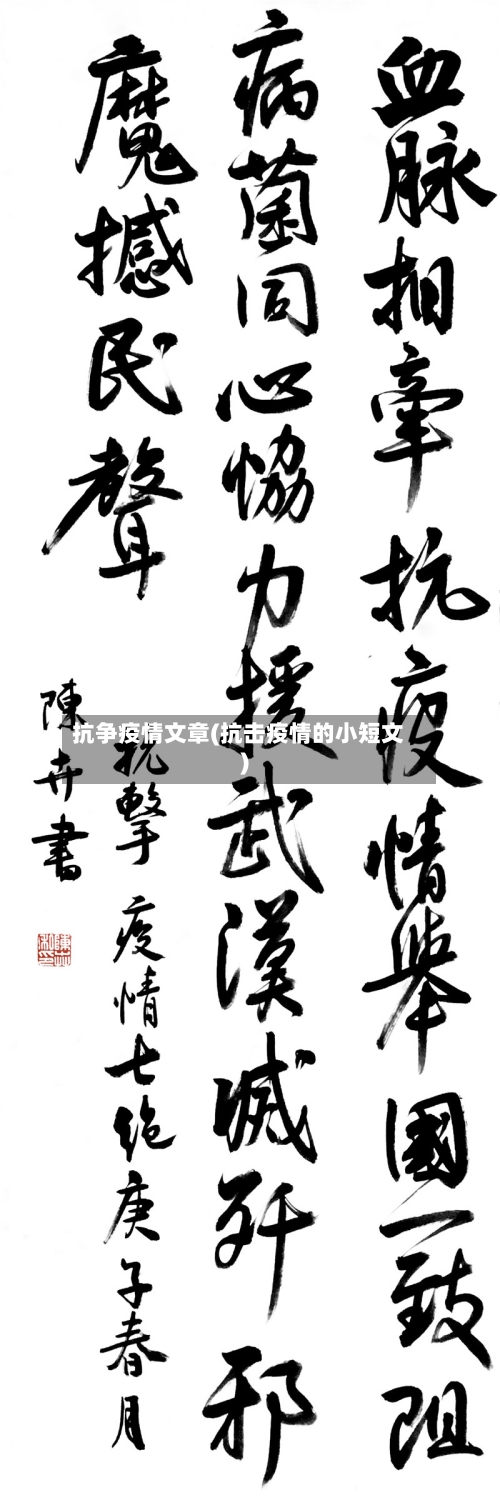 血脉相牽抗疫情舉國一致阻
病菌同心恊力援武漢滅歼邪
魔撼民聲
抗擊疫情七绝庚子春月
陳卉書
抗争疫情文章(抗击疫情的小短文
)